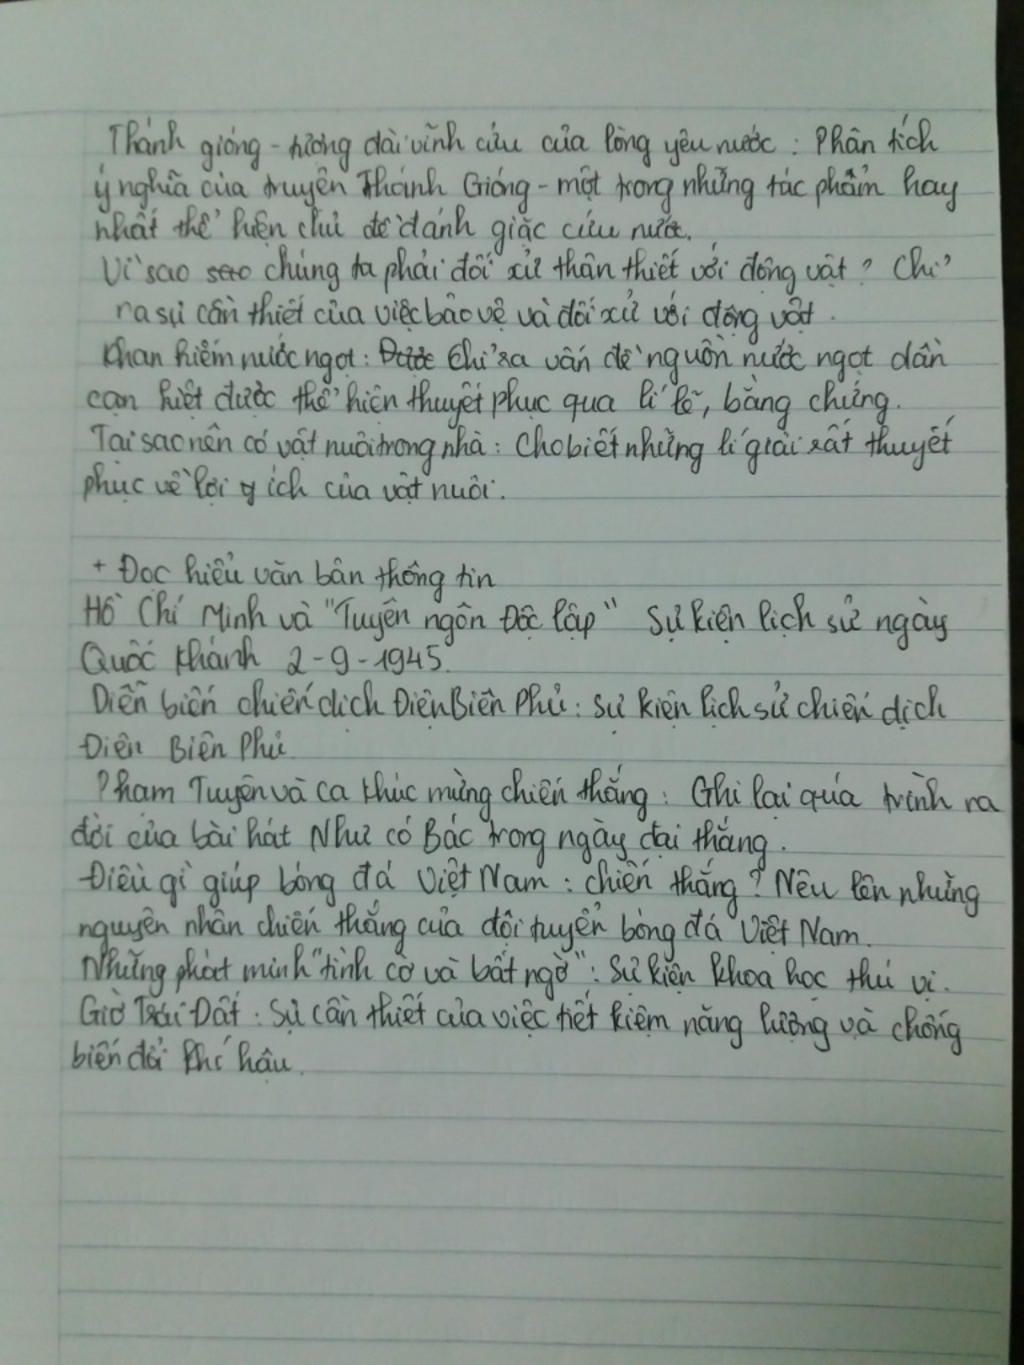 Thánh gióng - tượng đài vĩnh cửu của lòng yêu nước : Phân tích
ý nghĩa của truyện Thánh Gióng - một trong những tác phẩm hay
nhất thể hiện chủ đề đánh giặc cứu nước.
Vì sao sao chúng ta phải đối xử thân thiết với động vật ? Chỉ
ra sự cần thiết của việc bảo vệ và đối xử với động vật.
Khan hiếm nước ngọt : Được Chỉ ra vấn đề nguồn nước ngọt dần
cạn kiệt được thể hiện thuyết phục qua lí lẽ, bằng chứng.
Tại sao nên có vật nuôi trong nhà : Cho biết những lí giải rất thuyết
phục về lợi y ích của vật nuôi.
+ Đọc hiểu văn bản thông tin
Hồ Chí Minh và "Tuyên ngôn Độc lập" Sự kiện lịch sử ngày
Quốc khánh 2-9-1945.
Diễn biến chiến dịch Điện Biên Phủ : sự kiện lịch sử chiến dịch
Điện Biên Phủ.
Phạm Tuyên và ca khúc mừng chiến thắng : Ghi lại quá trình ra
đời của bài hát Như có Bác trong ngày đại thắng.
Điều gì giúp bóng đá Việt Nam : chiến thắng ? Nêu lên những
nguyên nhân chiến thắng của đội tuyển bóng đá Việt Nam.
Những phát minh "tình cờ và bất ngờ" : Sự kiện khoa học thú vị.
Giờ Trái Đất : Sự cần thiết của việc tiết kiệm năng lượng và chống
biến đổi khí hậu.